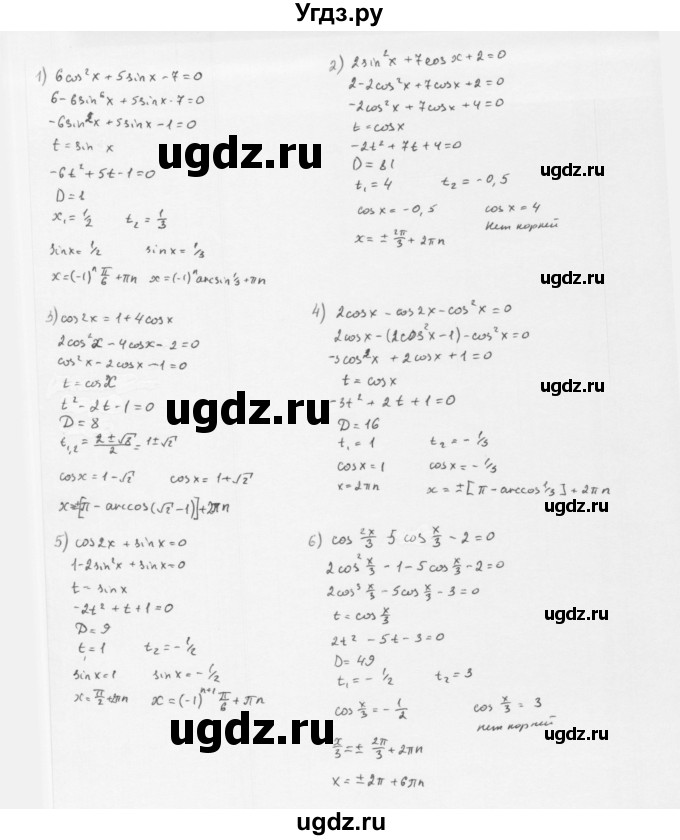 Угдз.ру
1) 6cos²x + 5sinx - 7 = 0
6 - 6sin⁶x + 5sinx - 7 = 0
-6sin²x + 5sinx - 1 = 0
t = sin x
-6t² + 5t - 1 = 0
D = 1
x₁ = 1/2 t₂ = 1/3
sinx = 1/2 sinx = 1/3
x = (-1)ⁿ π/6 + πn x = (-1)ⁿ arcsin 1/3 + πn
2) 2sin²x + 7cosx + 2 = 0
2 - 2cos²x + 7cosx + 2 = 0
-2cos²x + 7cosx + 4 = 0
t = cosx
-2t² + 7t + 4 = 0
D = 81
t₁ = 4 t₂ = -0,5
cosx = -0,5 cosx = 4
Нет корней
x = ± 2π/3 + 2πn
3) cos2x = 1 + 4cosx
2cos²x - 4cosx - 2 = 0
cos²x - 2cosx - 1 = 0
t = cosx
t² - 2t - 1 = 0
D = 8
t₁,₂ = (2 ± √8)/2 = 1 ± √2
cosx = 1 - √2 cosx = 1 + √2
x = ±[π - arccos(√2 - 1)] + 2πn
4) 2cosx - cos2x - cos²x = 0
2cosx - (2cos²x - 1) - cos²x = 0
-3cos²x + 2cosx + 1 = 0
t = cosx
-3t² + 2t + 1 = 0
D = 16
t₁ = 1 t₂ = -1/3
cosx = 1 cosx = -1/3
x = 2πn x = ±[π - arccos 1/3] + 2πn
5) cos2x + sinx = 0
1 - 2sin²x + sinx = 0
t = sinx
-2t² + t + 1 = 0
D = 9
t₁ = 1 t₂ = -1/2
sinx = 1 sinx = -1/2
x = π/2 + 2πn x = (-1)ⁿ⁺¹ π/6 + πn
6) cos 2x/3 - 5cos x/3 - 2 = 0
2cos² x/3 - 1 - 5cos x/3 - 2 = 0
2cos² x/3 - 5cos x/3 - 3 = 0
t = cos x/3
2t² - 5t - 3 = 0
D = 49
t₁ = -1/2 t₂ = 3
cos x/3 = -1/2 cos x/3 = 3
нет корней
x/3 = ± 2π/3 + 2πn
x = ± 2π + 6πn
ugdz.ru
ugdz.ru
ugdz.ru
ugdz.ru
ugdz.ru
ugdz.ru
ugdz.ru
ugdz.ru
ugdz.ru
ugdz.ru
ugdz.ru